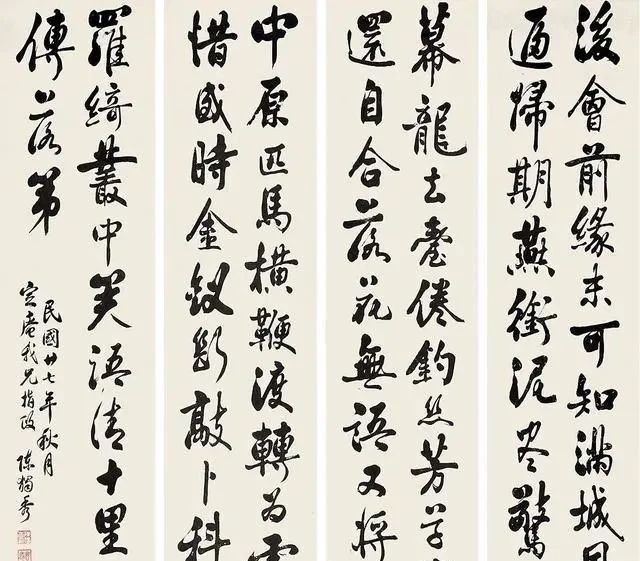 後會前緣未可知滿城
逼歸期燕銜泥尽驚
幕龍去臺倦釣絲芳草
還自合落花無語又將
中原匹馬橫鞭渡轉為
惜盛時金釵斷敲卜科
羅綺叢中笑語清十里
傳落第
民國廿七年秋月
庵我兄指政 陳獨秀